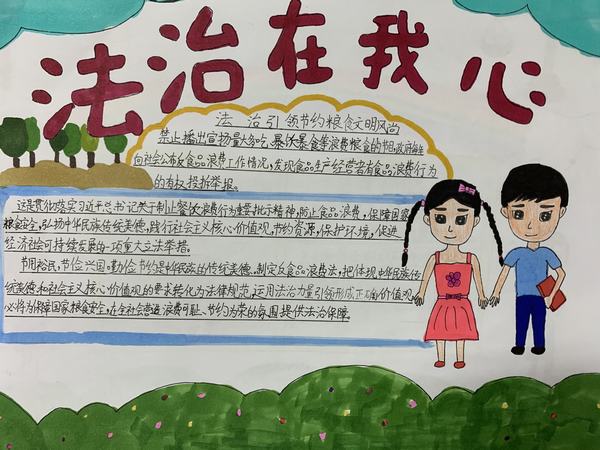 法治在我心
法治引领节约粮食文明风尚
禁止播出宣扬量大多吃、暴饮暴食等浪费粮食的节目政府每年
向社会公布反食品浪费工作情况,发现食品生产经营者有食品浪费行为
的有权投拆举报。
这是贯彻落实习近平总书记关于制止餐饮浪费行为重要批示精神,防止食品浪费,保障国家
粮食安全,弘扬中华民族传统美德,践行社会主义核心价值观,节约资源,保护环境,促进
经济社会可持续发展的一项重大立法举措。
节用裕民,节俭兴国。勤俭节约是中华民族的传统美德。制定反食品浪费法,把体现中华民族传
统美德和社会主义核心价值观的要求转化为法律规范,运用法治力量引领形成正确价值观
必将为保障国家粮食安全,在全社会营造浪费可耻、节约为荣的氛围提供法治保障